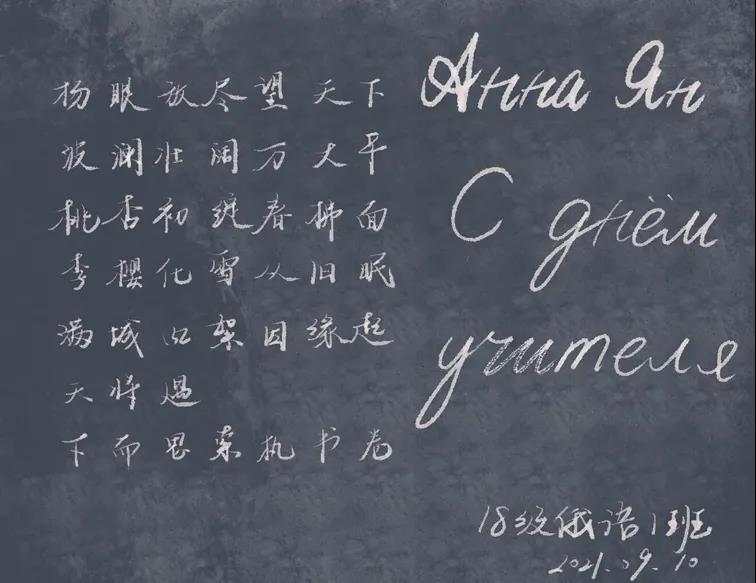 杨眼放尽望天下
波澜壮阔万大平
桃杏初绽春拂面
李樱化雪从旧眠
满城 架因缘起
天将遇
下而思索执书卷
Анна Ян
С днём
учителя
18级俄语1班
2021.09.10